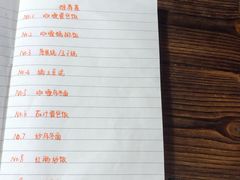 推荐菜
No.1 咖喱蛋包饭
No.2 咖喱焗饭
No.3
No.4
No.5 咖喱乌冬面
No.6 茄汁蛋包饭
No.7 炒乌冬面
No.8 炒饭